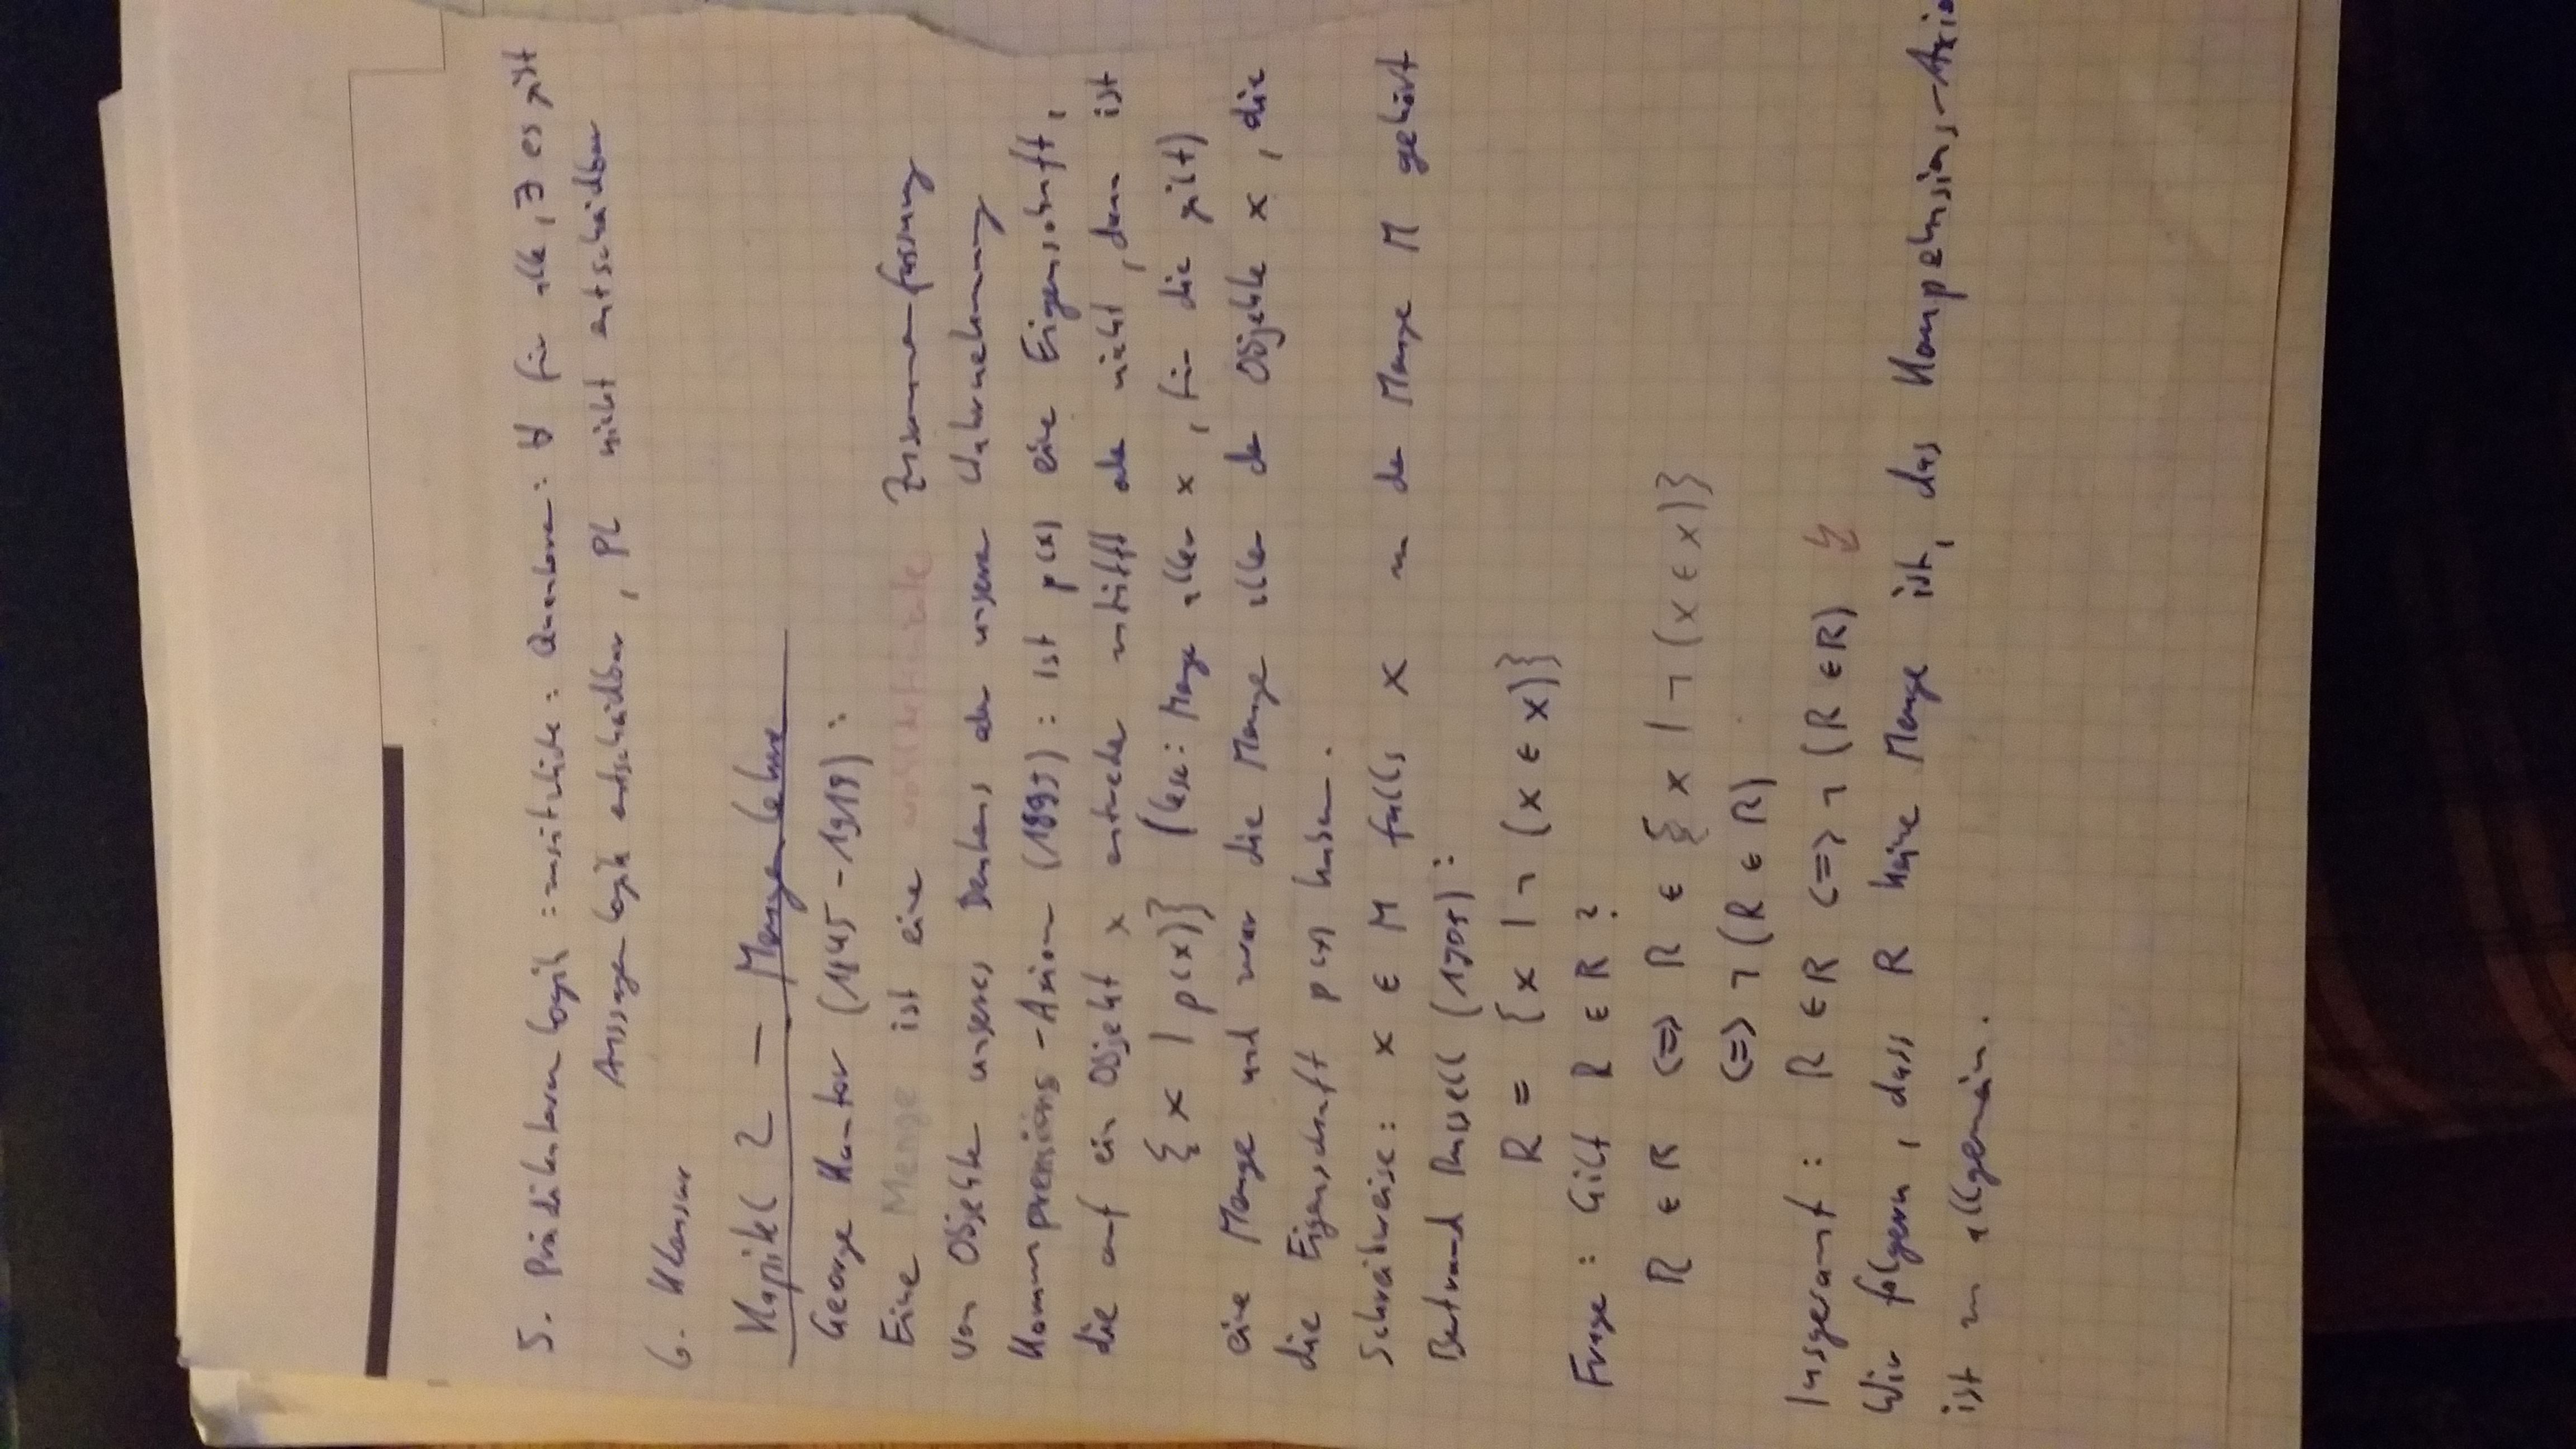 5. Prädikatenlogik : zusätzliche : Quantoren : ∀ für alle, ∃ es gibt
Aussagenlogik entscheidbar , PL nicht entscheidbar
6. Klausur
Kapitel 2 — Mengenlehre
George Kantor (1845 - 1918) :
Eine Menge ist eine wohldefinierte Zusammenfassung
von Objekten unseres Denkens oder unserer Wahrnehmung
-Axiom (1895) : ist p(x) eine Eigenschaft,
die auf ein Objekt x entweder zutrifft oder nicht , dann ist
{ x | p(x)} (lese: Menge aller x , für die gilt)
eine Menge und zwar die Menge aller der Objekte x , die
die Eigenschaft p(x) haben .
Schreibweise : x ∈ M falls x zu der Menge M gehört
Bertrand Russell (1905) :
R = {x | ¬ (x ∈ x)}
Frage : Gilt R ∈ R ?
R ∈ R <=> R ∈ { x | ¬ (x ∈ x)}
<=> ¬ (R ∈ R)
Insgesamt : R ∈ R <=> ¬ (R ∈ R) ↯
Wir folgern , dass R keine Menge ist, das
ist zu allgemein .